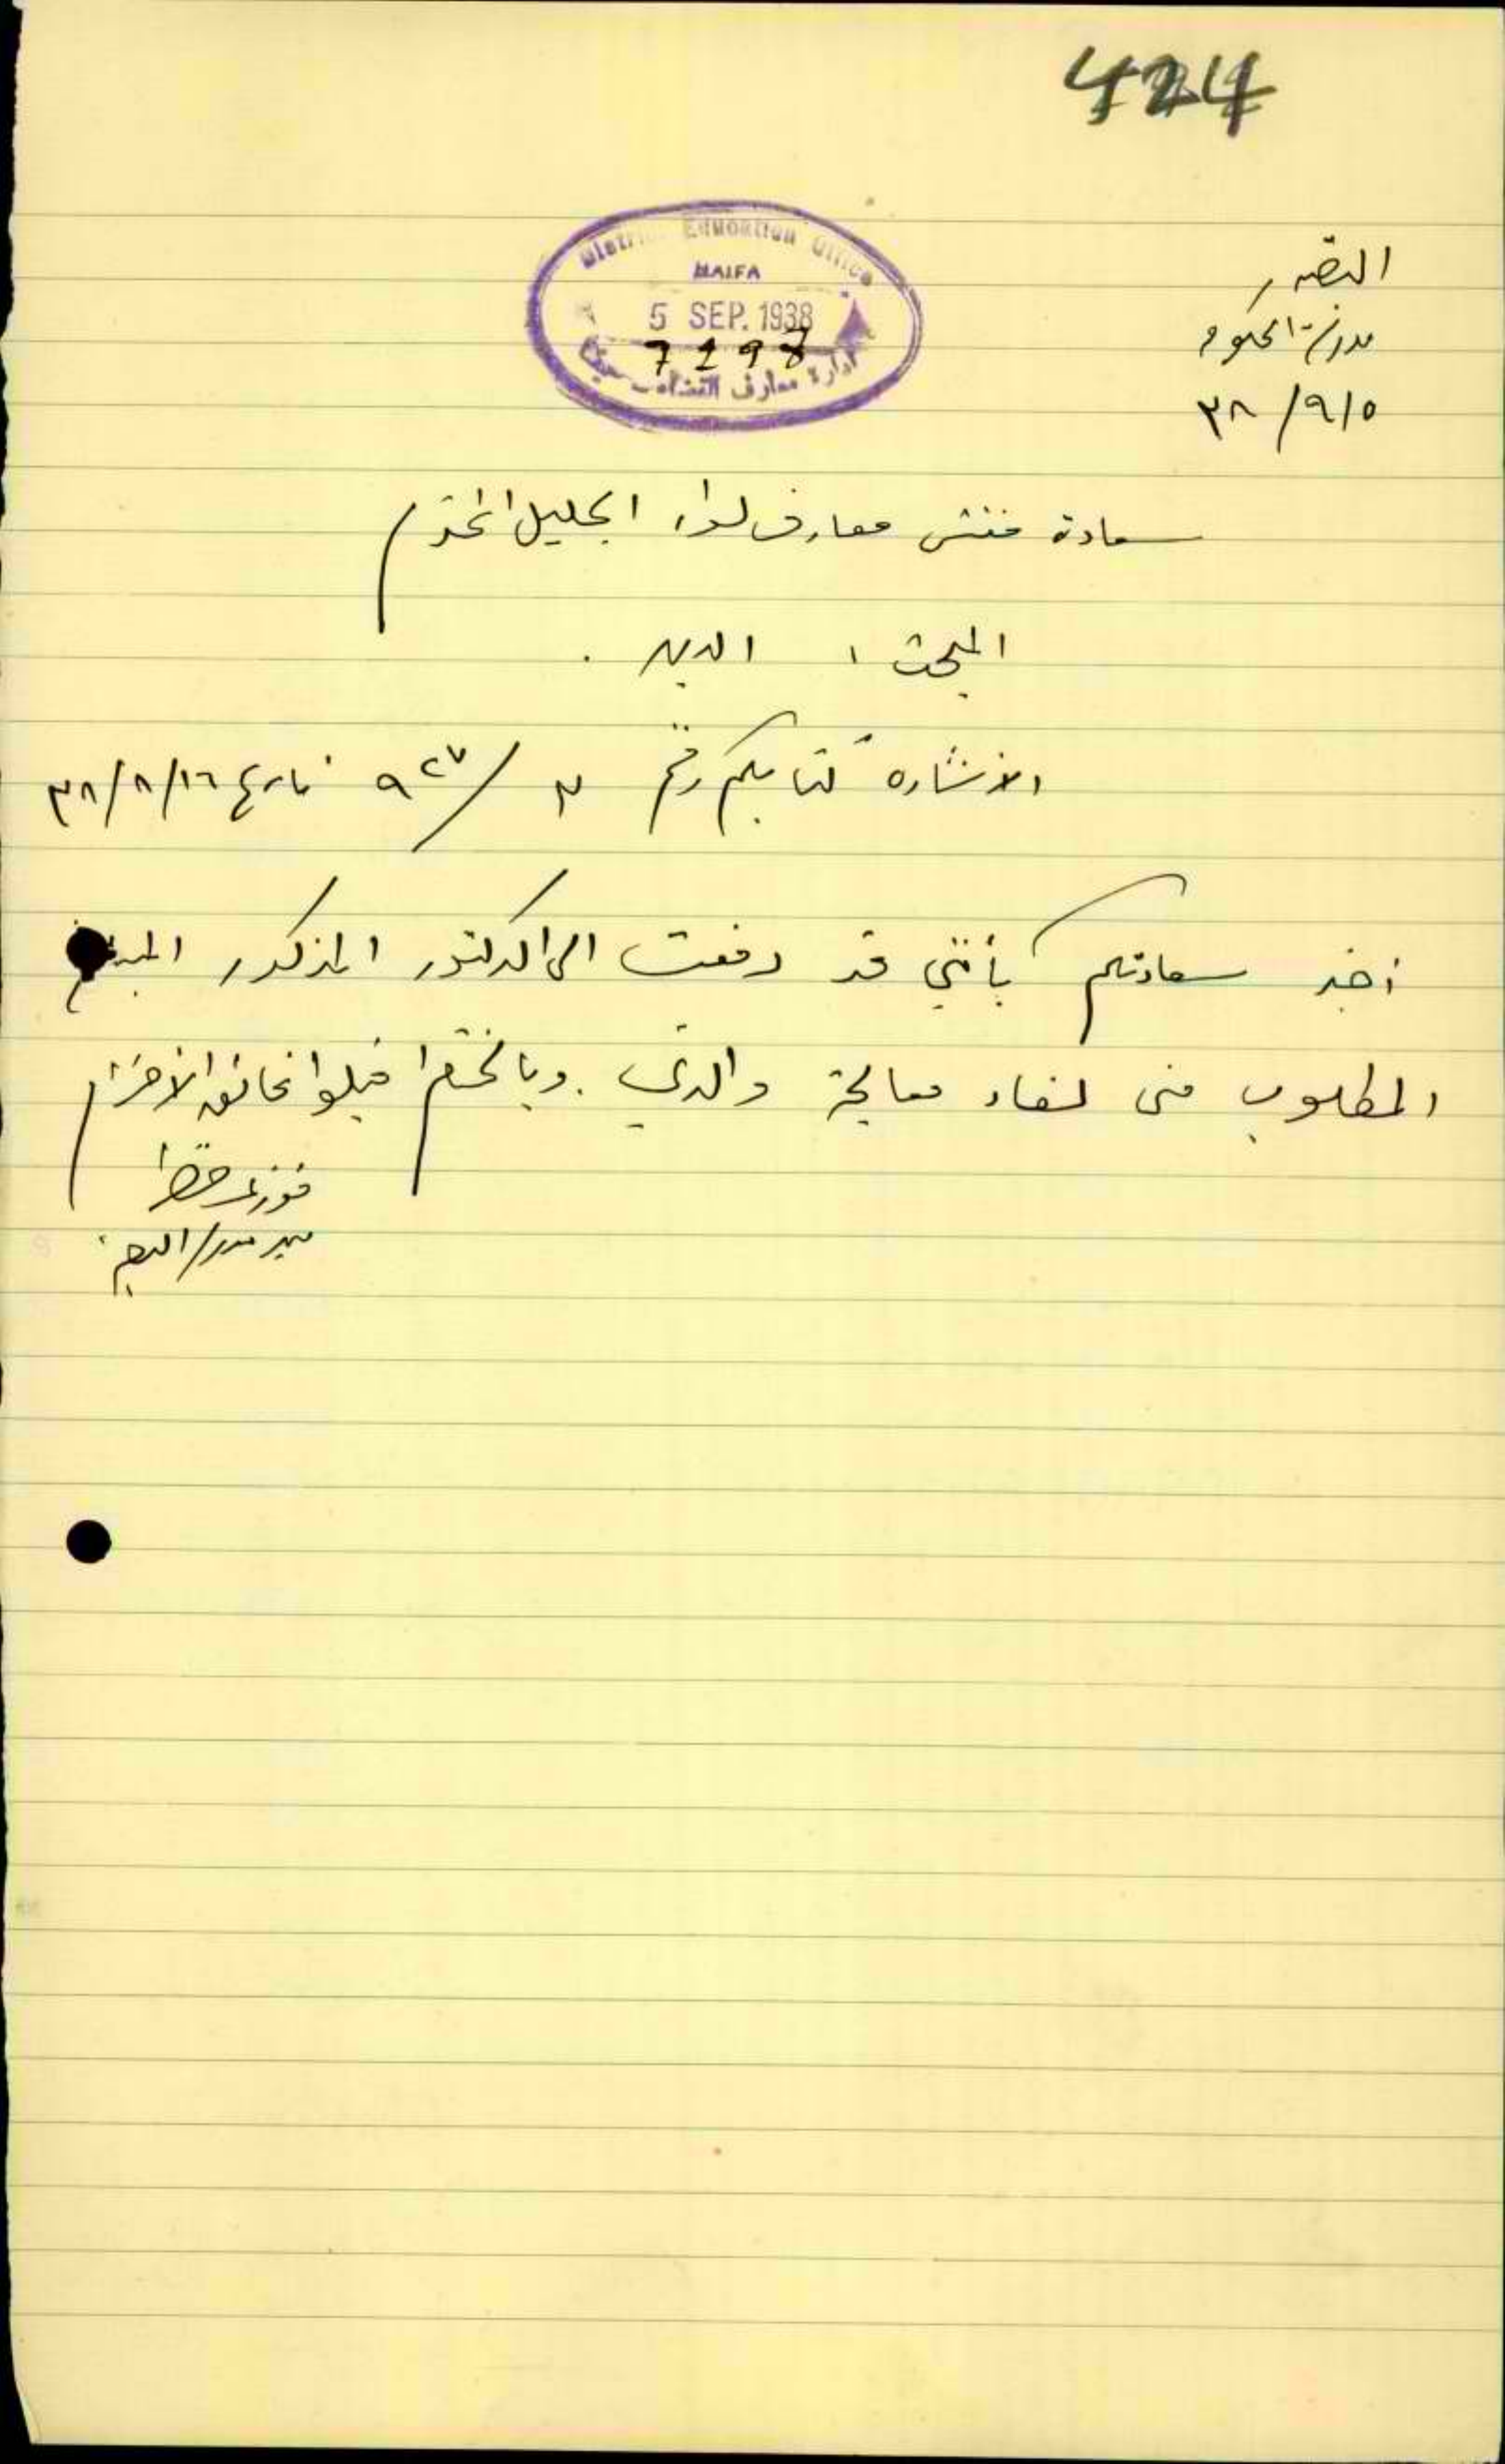 424
District Education Office
HAIFA
5 SEP. 1938
7298
ادارة معارف القضاء حيفا
مدرسة الحكومة
٣٨/٩/٥
سعادة مفتش معارف لواء الجليل المحترم
المبحث : الدين .
الاشاره كتابكم رقم ٣ / ٩٢٧ تاريخ ٣٨/٨/١٦
أخبر سعادتكم بأنني قد دفعت الى الدكتور المذكور المبلغ
المطلوب مني لقاء معالجة والدتي . وبالختام اقبلوا فائق الاحترام
فوزي
مدير مدرسة